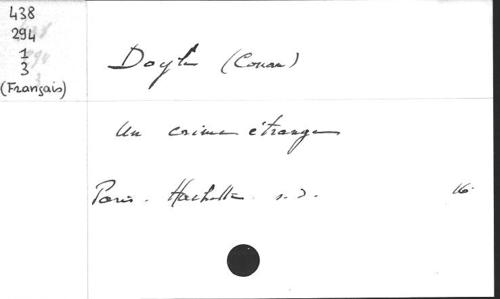 438
294
1
3
(Français)
Doyle (Conan)
Un crime étrange
Paris. Hachette s. d. 16°